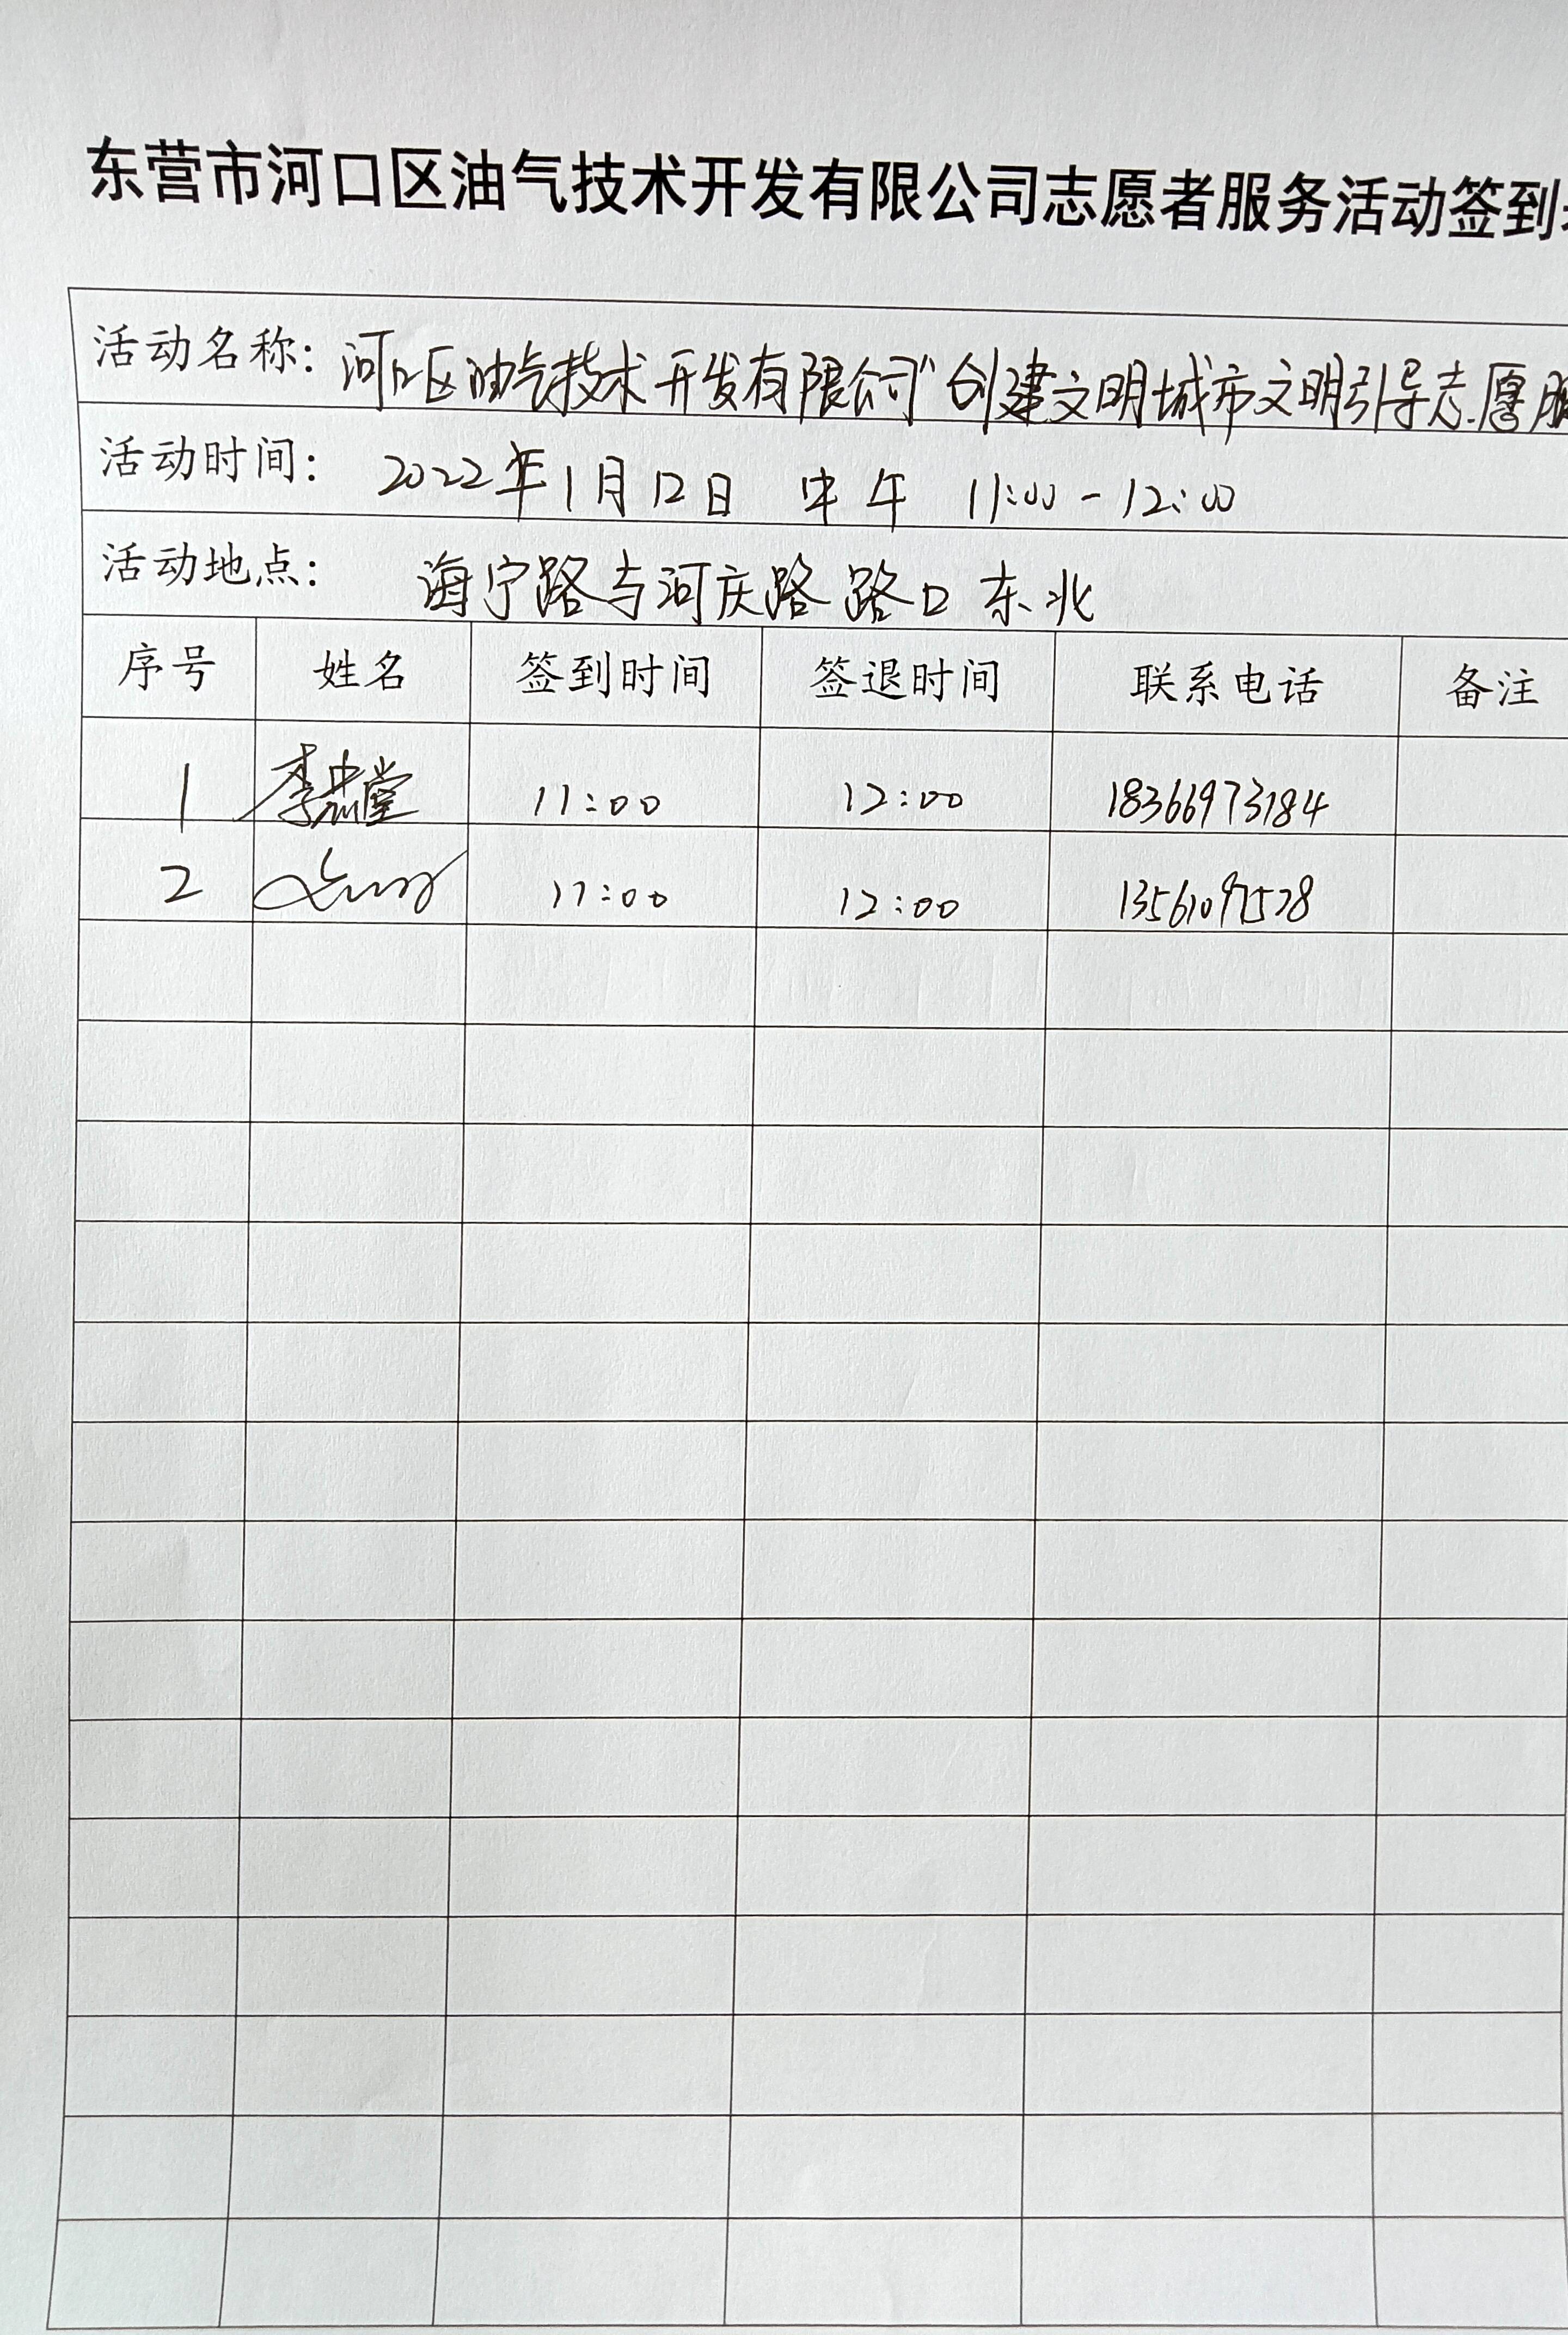 东营市河口区油气技术开发有限公司志愿者服务活动签到
活动名称：河口区油气技术开发有限公司“创建文明城市文明引导志愿服
活动时间：2022年1月12日 中午 11:00-12:00
活动地点：海宁路与河庆路路口东北
序号 姓名 签到时间 签退时间 联系电话 备注
1 李忠堂 11:00 12:00 18366973184
2 11:00 12:00 13561097578